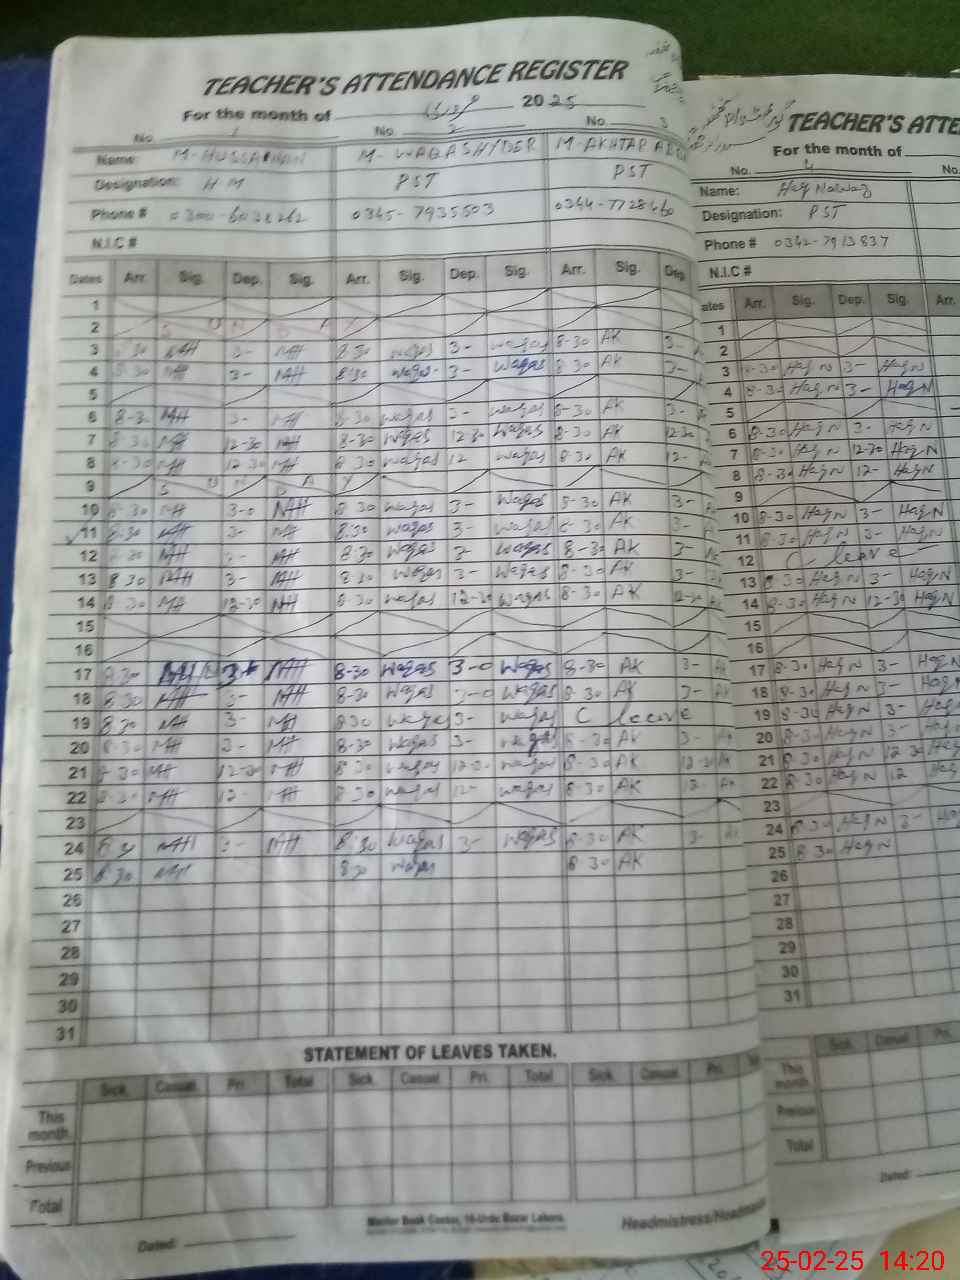 TEACHER'S ATTENDANCE REGISTER
For the month of 2025
No. 1 No. 2 No. 3
Name: M-HUSSAIN M-WAQASHYDER M-AKHTAR
Designation: HM PST PST
Phone # 0345-7935503 0344-7728460
N.I.C #
Dates Arr. Sig. Dep. Sig. Arr. Sig. Dep. Sig. Arr. Sig. Dep.
1
2 S U N D A Y
3 8-30 MH 3- MH 8:30 waqas 3- waqas 8-30 AK 3-
4 8-30 MH 3- MH 8:30 waqas 3- waqas 8-30 AK 3-
5
6 8-30 MH 3- MH 8-30 waqas 3- waqas 8-30 AK 3-
7 8-30 MH 12-30 MH 8-30 waqas 12-30 waqas 8-30 AK 12-30
8 8-30 MH 12-30 MH 8-30 waqas 12 waqas 8-30 AK 12-
9 S U N D A Y
10 8-30 MH 3-0 MH 8-30 waqas 3- waqas 8-30 AK 3-
11 8-30 MH 3- MH 8:30 waqas 3- waqas 8-30 AK 3-
12 8-30 MH 3- MH 8:30 waqas 3- waqas 8-30 AK 3-
13 8-30 MH 3- MH 8-30 waqas 3- waqas 8-30 AK 3-
14 8-30 MH 12-30 MH 8-30 waqas 12-30 waqas 8-30 AK 12-30
15
16
17 8-30 MH 3- MH 8-30 waqas 3-0 waqas 8-30 AK 3- AK
18 8-30 MH 3- MH 8-30 waqas 3-0 waqas 8-30 AK 3- AK
19 8-30 MH 3- MH 8-30 waqas 3- waqas C leave
20 8-30 MH 3- MH 8-30 waqas 3- waqas 8-30 AK 3- AK
21 8-30 MH 12-30 MH 8-30 waqas 12-30 waqas 8-30 AK 12-30 AK
22 8-30 MH 12- MH 8-30 waqas 12- waqas 8-30 AK 12- AK
23
24 8-30 MH 3- MH 8:30 waqas 3- waqas 8-30 AK 3- AK
25 8-30 MH 8-30 waqas 8-30 AK
26
27
28
29
30
31
STATEMENT OF LEAVES TAKEN.
Sick. Casual. Pri. Total Sick. Casual. Pri. Total Sick. Casual. Pri.
This month.
Previous
Total
Master Book Center, 16-Urdu Bazar Lahore.
Dated: Headmistress/Headmaster
TEACHER'S ATTE
For the month of
No. 4 No.
Name: Haq Nawaz
Designation: PST
Phone # 0342-7913837
N.I.C #
ates Arr. Sig. Dep. Sig. Arr.
1
2
3 8-30 HaqN 3- HaqN
4 8-30 HaqN 3- HaqN
5
6 8-30 HaqN 3- HaqN
7 8-30 HaqN 12-30 HaqN
8 8-30 HaqN 12- HaqN
9
10 8-30 HaqN 3- HaqN
11 8-30 HaqN 3- HaqN
12 C leave
13 8-30 HaqN 3- HaqN
14 8-30 HaqN 12-30 HaqN
15
16
17 8-30 HaqN 3- HaqN
18 8-30 HaqN 3- HaqN
19 8-30 HaqN 3- HaqN
20 8-30 HaqN 3- HaqN
21 8-30 HaqN 12-30 Haq
22 8-30 HaqN 12 Haq
23
24 8-30 HaqN 3- Haq
25 8-30 HaqN
26
27
28
29
30
31
Sick. Casual. Pri.
This month.
Previous
Total
Dated:
25-02-25 14:20